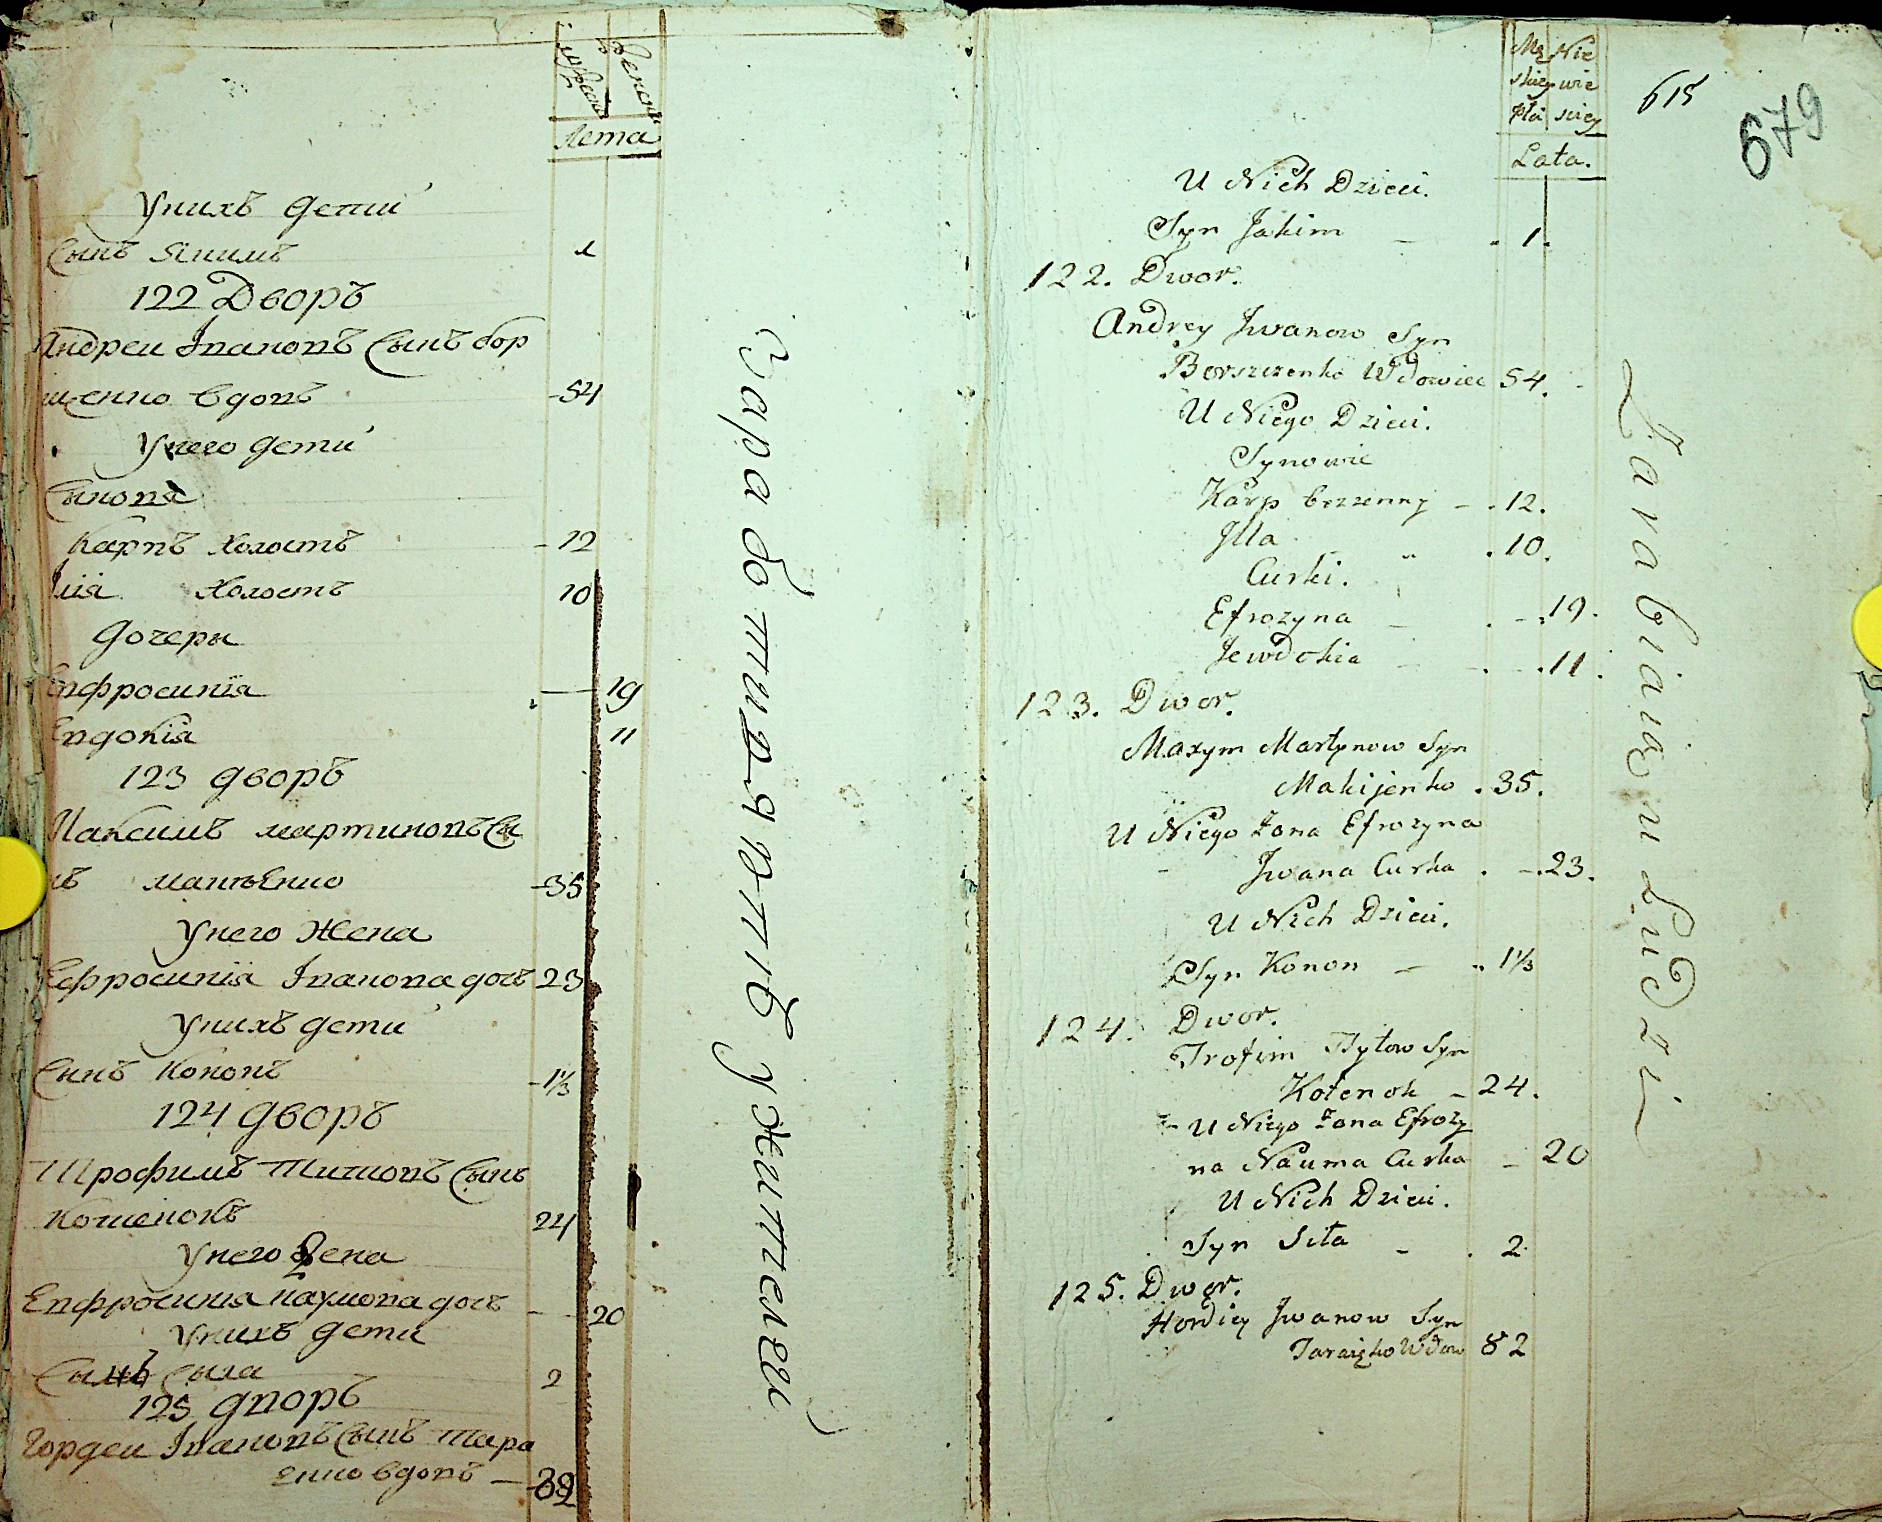 Мужеска Женска
Лета
Унихъ дети
Сынъ Якимъ 1
122 Дворъ
Андреи Ивановъ Сынъ бор
щенко вдовъ 54
Унего дети
Сынова
Карпъ Холостъ 12
Iлiя Холостъ 10
Дочеры
Евфросинїя 19
Евдокїя 11
123 дворъ
Максимъ мартиновъ Сы
нъ макѣенко 35
Унего Жена
Ефросинїя Iванова дочь 23
Унихъ дети
Сынъ Кононъ 1⅓
124 дворъ
Трофимъ Титовъ Сынъ
котенокъ 24
Унего Жена
Евфросиния наумова дочь 20
Унихъ дети
Сынъ Сыла 2
125 дворъ
Гордеи Iвановъ Сынъ тара
енко вдовъ 82
Заработивъ у жителей
Mę Nie
skiey wie
płci sciey
615
679
Lata.
U Nich Dzieci.
Syn Jakim 1.
122. Dwor.
Andrey Jwanow Syn
Borszczenko Wdowiec 54.
U Niego Dzieci.
Synowie
Karp bezzenny 12.
Jlla „ 10.
Curki.
Efrozyna 19.
Jewdokia 11.
123. Dwor.
Maxym Martynow Syn
Makijenko 35.
U Niego Zona Efrozyna
Jwana Curka 23.
U Nich Dzieci.
Syn Konon 1⅓
124. Dwor.
Trofim Tytow Syn
Kotenok 24.
U Niego Zona Efrozy
na Nauma Curka 20
U Nich Dzieci.
Syn Siła 2
125. Dwor.
Hordiey Jwanow Syn
Wdow 82
Zarabiaią u Ludzi